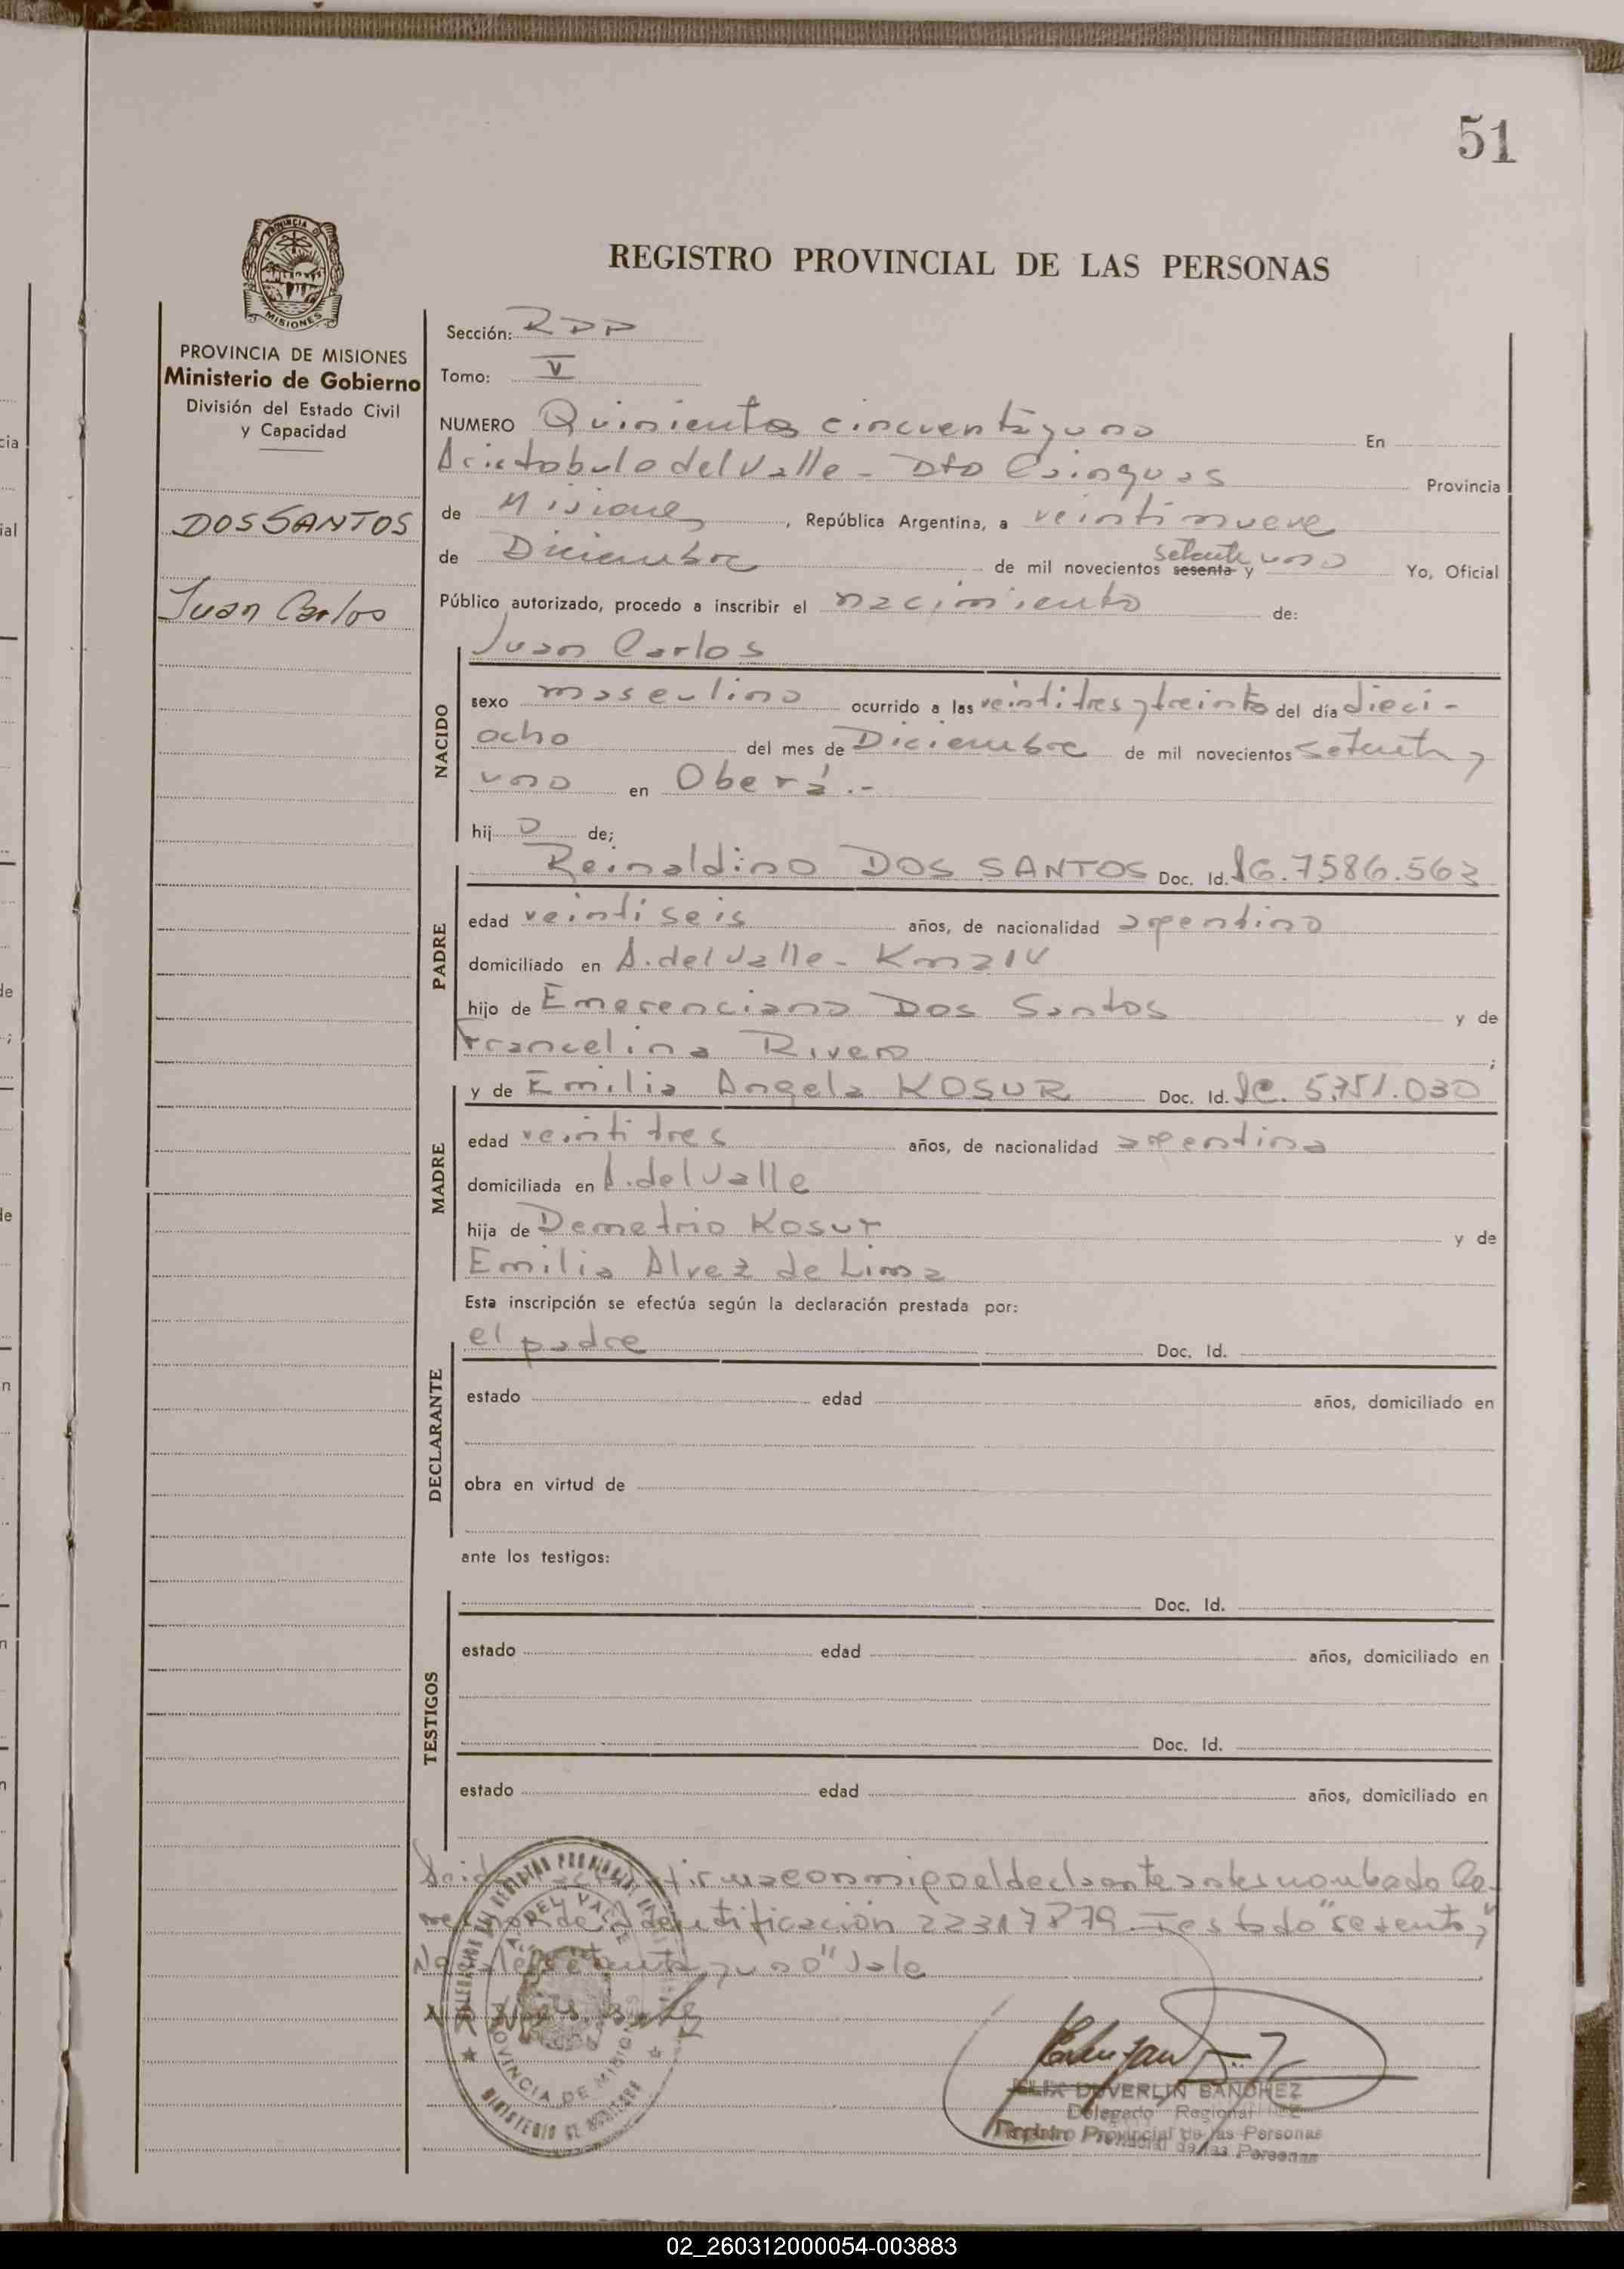 51
REGISTRO PROVINCIAL DE LAS PERSONAS
PROVINCIA DE MISIONES
MISIONES
PROVINCIA DE MISIONES
Ministerio de Gobierno
División del Estado Civil
y Capacidad
DOS SANTOS
Juan Carlos
Sección: RDP
Tomo: V
NUMERO Quinientos cincuenta y uno En
Aristobulo del Valle - Dto Cainguas Provincia
de Misiones, República Argentina, a veintinueve
de Diciembre de mil novecientos sesenta y setenta uno Yo, Oficial
Público autorizado, procedo a inscribir el nacimiento de:
NACIDO
Juan Carlos
sexo masculino ocurrido a las veintitres y treinta del día dieci-
ocho del mes de Diciembre de mil novecientos setenta y
uno en Oberá.-
hijo de;
PADRE
Reinaldino DOS SANTOS Doc. Id. 7586.563
edad veintiseis años, de nacionalidad argentino
domiciliado en A. del Valle - Km 214
hijo de Emerenciano Dos Santos y de
Francelina Rivero;
MADRE
y de Emilia Angela KOSUR Doc. Id. 5.751.030
edad veintitres años, de nacionalidad argentina
domiciliada en A. del Valle
hija de Demetrio Kosur y de
Emilia Alvez de Lima
Esta inscripción se efectúa según la declaración prestada por:
DECLARANTE
el padre Doc. Id.
estado edad años, domiciliado en
obra en virtud de
ante los testigos:
TESTIGOS
Doc. Id.
estado edad años, domiciliado en
Doc. Id.
estado edad años, domiciliado en
firma conmigo el declarante antes nombrado
de Identificación 22317879. Testado "sesenta y"
"setenta y uno" Vale
A. DEL VALLE
PROVINCIA DE MISIONES
MINISTERIO DE GOBIERNO
FELIX DUVERLIN SANCHEZ
Delegado Regional
Registro Provincial de las Personas
02_260312000054-003883